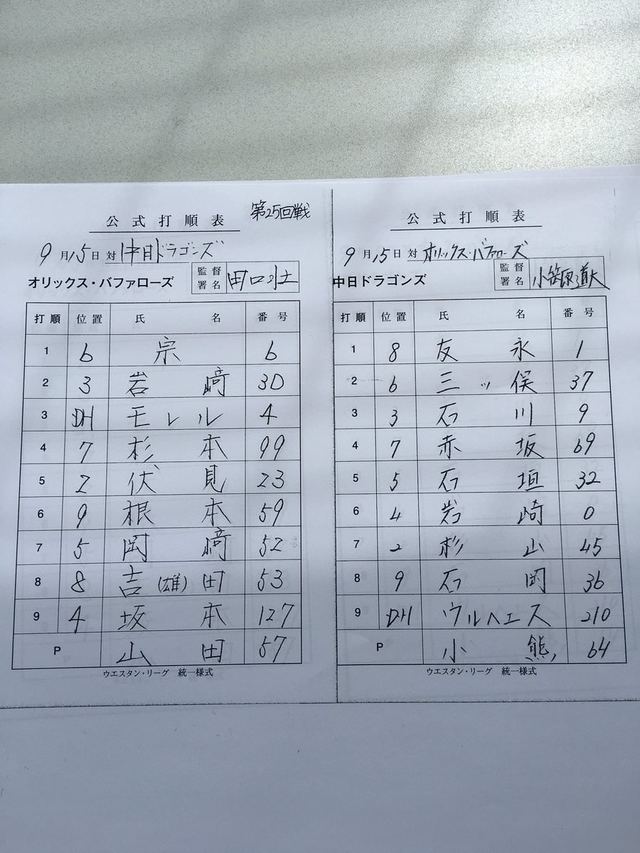 公式打順表 第25回戦
9月15日対 中日ドラゴンズ
オリックス・バファローズ 監督署名 田口壮
打順 位置 氏 名 番号
1 6 宗 6
2 3 岩﨑 30
3 DH モレル 4
4 7 杉本 99
5 2 伏見 23
6 9 根本 59
7 5 岡﨑 52
8 8 吉(雄)田 53
9 4 坂本 127
P 山田 57
ウエスタン・リーグ 統一様式
公式打順表
9月15日対 オリックス・バファローズ
中日ドラゴンズ 監督署名 小笠原道大
打順 位置 氏 名 番号
1 8 友永 1
2 6 三ッ俣 37
3 3 石川 9
4 7 赤坂 69
5 5 石垣 32
6 4 岩崎 0
7 2 杉山 45
8 9 石岡 36
9 DH ウルヘエス 210
P 小熊 64
ウエスタン・リーグ 統一様式